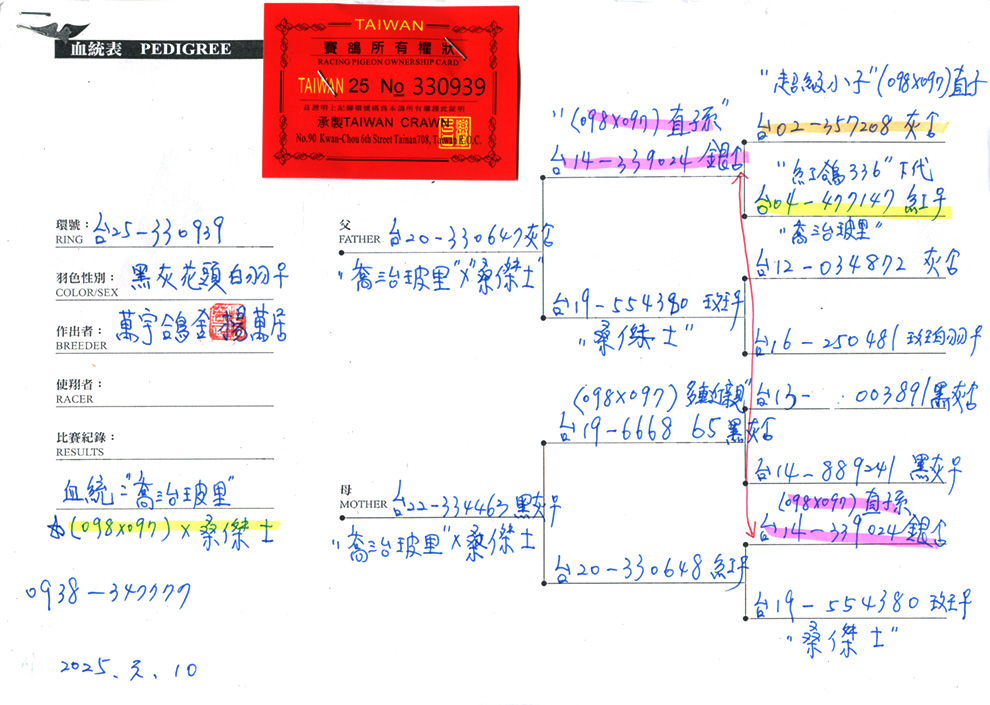 血統表 PEDIGREE
TAIWAN
賽鴿所有權狀
RACING PIGEON OWNERSHIP CARD
TAIWAN 25 No 330939
茲證明上記腳環號碼為本鴿所有權謹此證明
承製TAIWAN CRAWN
No.90 Kwan-Chou 6th Street Tainan708, Taiwan R.O.C.
環號:
RING 台25-330939
羽色性別:
COLOR/SEX 黑灰花頭白羽♀
作出者:
BREEDER 萬宇鴿舍 楊萬居
使翔者:
RACER
比賽紀錄:
RESULTS
血統:"喬治玻里"
(098×097)×桑傑士
0938-347777
2025.元.10
父
FATHER 台20-330647灰♂
"喬治玻里"×"桑傑士"
母
MOTHER 台22-334463黑灰♀
"喬治玻里"×桑傑士"
"(098×097)直子孫"
台14-339024 銀♂
台19-554380 斑♀
"桑傑士"
(098×097)多重近親"
台19-6668 65黑灰♂
台20-330648 紅♀
"超級小子"(098×097)直子
台02-357208 灰♂
"紅鴿336"下代
台04-477147 紅♀
"喬治玻里"
台12-034872 灰♂
台16-250481 斑白羽♀
台13- 003891黑灰♂
台14-889241 黑灰♀
(098×097)直子孫
台14-339024銀♂
台19-554380 斑♀
"桑傑士"